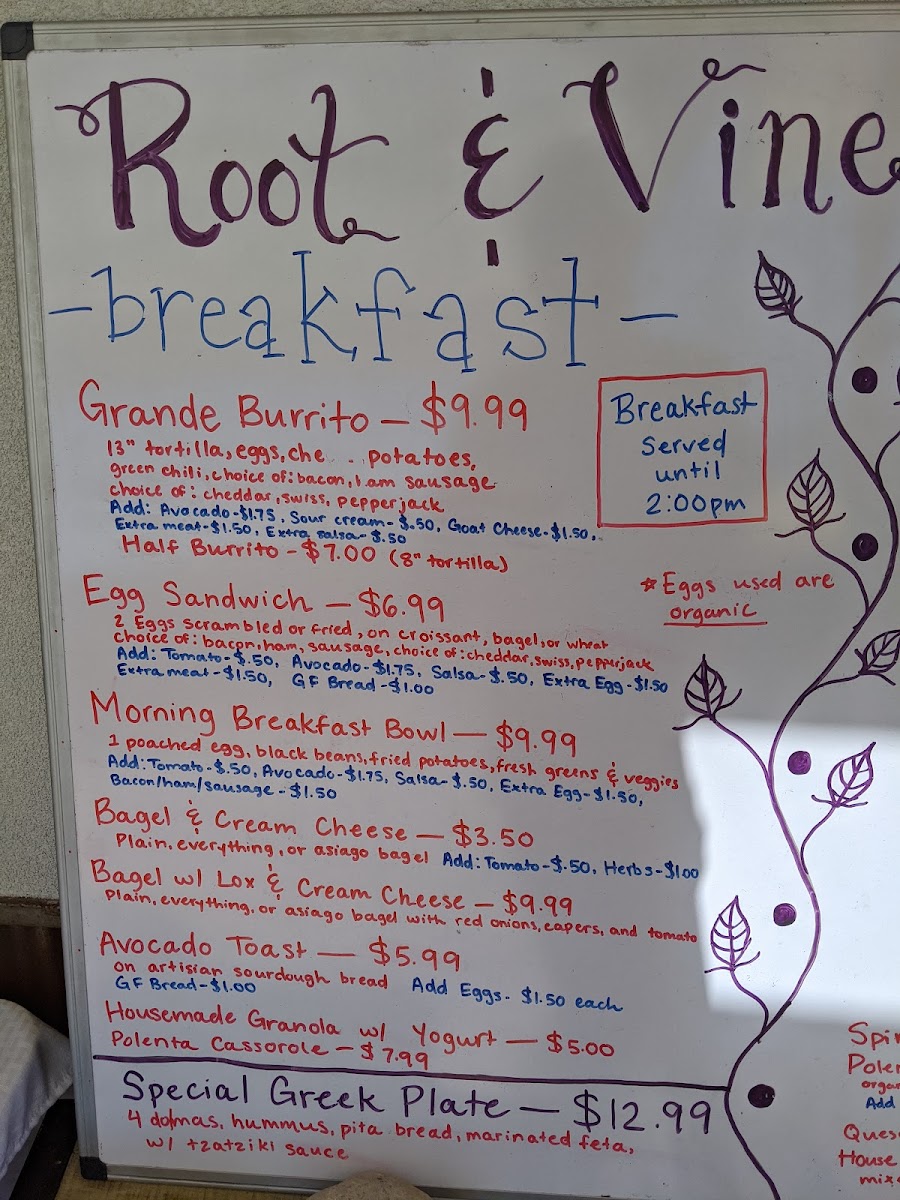 Root & Vine
-breakfast-
Grande Burrito - $9.99
13" tortilla, eggs, che potatoes,
green chili, choice of: bacon, ham sausage
choice of: cheddar, swiss, pepperjack
Add: Avocado-$1.75, Sour cream-$.50, Goat Cheese-$1.50,
Extra meat-$1.50, Extra salsa-$.50
Half Burrito - $7.00 (8" tortilla)
Breakfast
Served
until
2:00pm
*Eggs used are
organic
Egg Sandwich - $6.99
2 Eggs scrambled or fried, on croissant, bagel, or wheat
choice of: bacon, ham, sausage, choice of: cheddar, swiss, pepperjack
Add: Tomato-$.50, Avocado-$1.75, Salsa-$.50, Extra Egg-$1.50
Extra meat-$1.50, GF Bread-$1.00
Morning Breakfast Bowl - $9.99
1 poached egg, black beans, fried potatoes, fresh greens & veggies
Add: Tomato-$.50, Avocado-$1.75, Salsa-$.50, Extra Egg-$1.50,
Bacon/ham/sausage-$1.50
Bagel & Cream Cheese - $3.50
Plain, everything, or asiago bagel Add: Tomato-$.50, Herbs-$1.00
Bagel w/ Lox & Cream Cheese - $9.99
Plain, everything, or asiago bagel with red onions, capers, and tomato
Avocado Toast - $5.99
on artisian sourdough bread Add Eggs- $1.50 each
GF Bread-$1.00
Housemade Granola w/ Yogurt - $5.00
Polenta Cassorole - $7.99
Special Greek Plate - $12.99
4 dolmas, hummus, pita bread, marinated feta,
w/ tzatziki sauce
Spin
Polen
orga
Add
Ques
House
mix